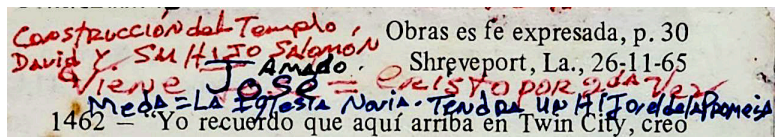 Construcción del Templo, Obras es fe expresada, p. 30
David Y SU HIJO SALOMÓN Shreveport, La., 26-11-65
AMADO.
Viene José = CRISTO POR 2da Vez
Meda = LA Iglesia Novia. Tendra UN HIJO el de la Promesa
1462 – "Yo recuerdo que aquí arriba en Twin City, creo